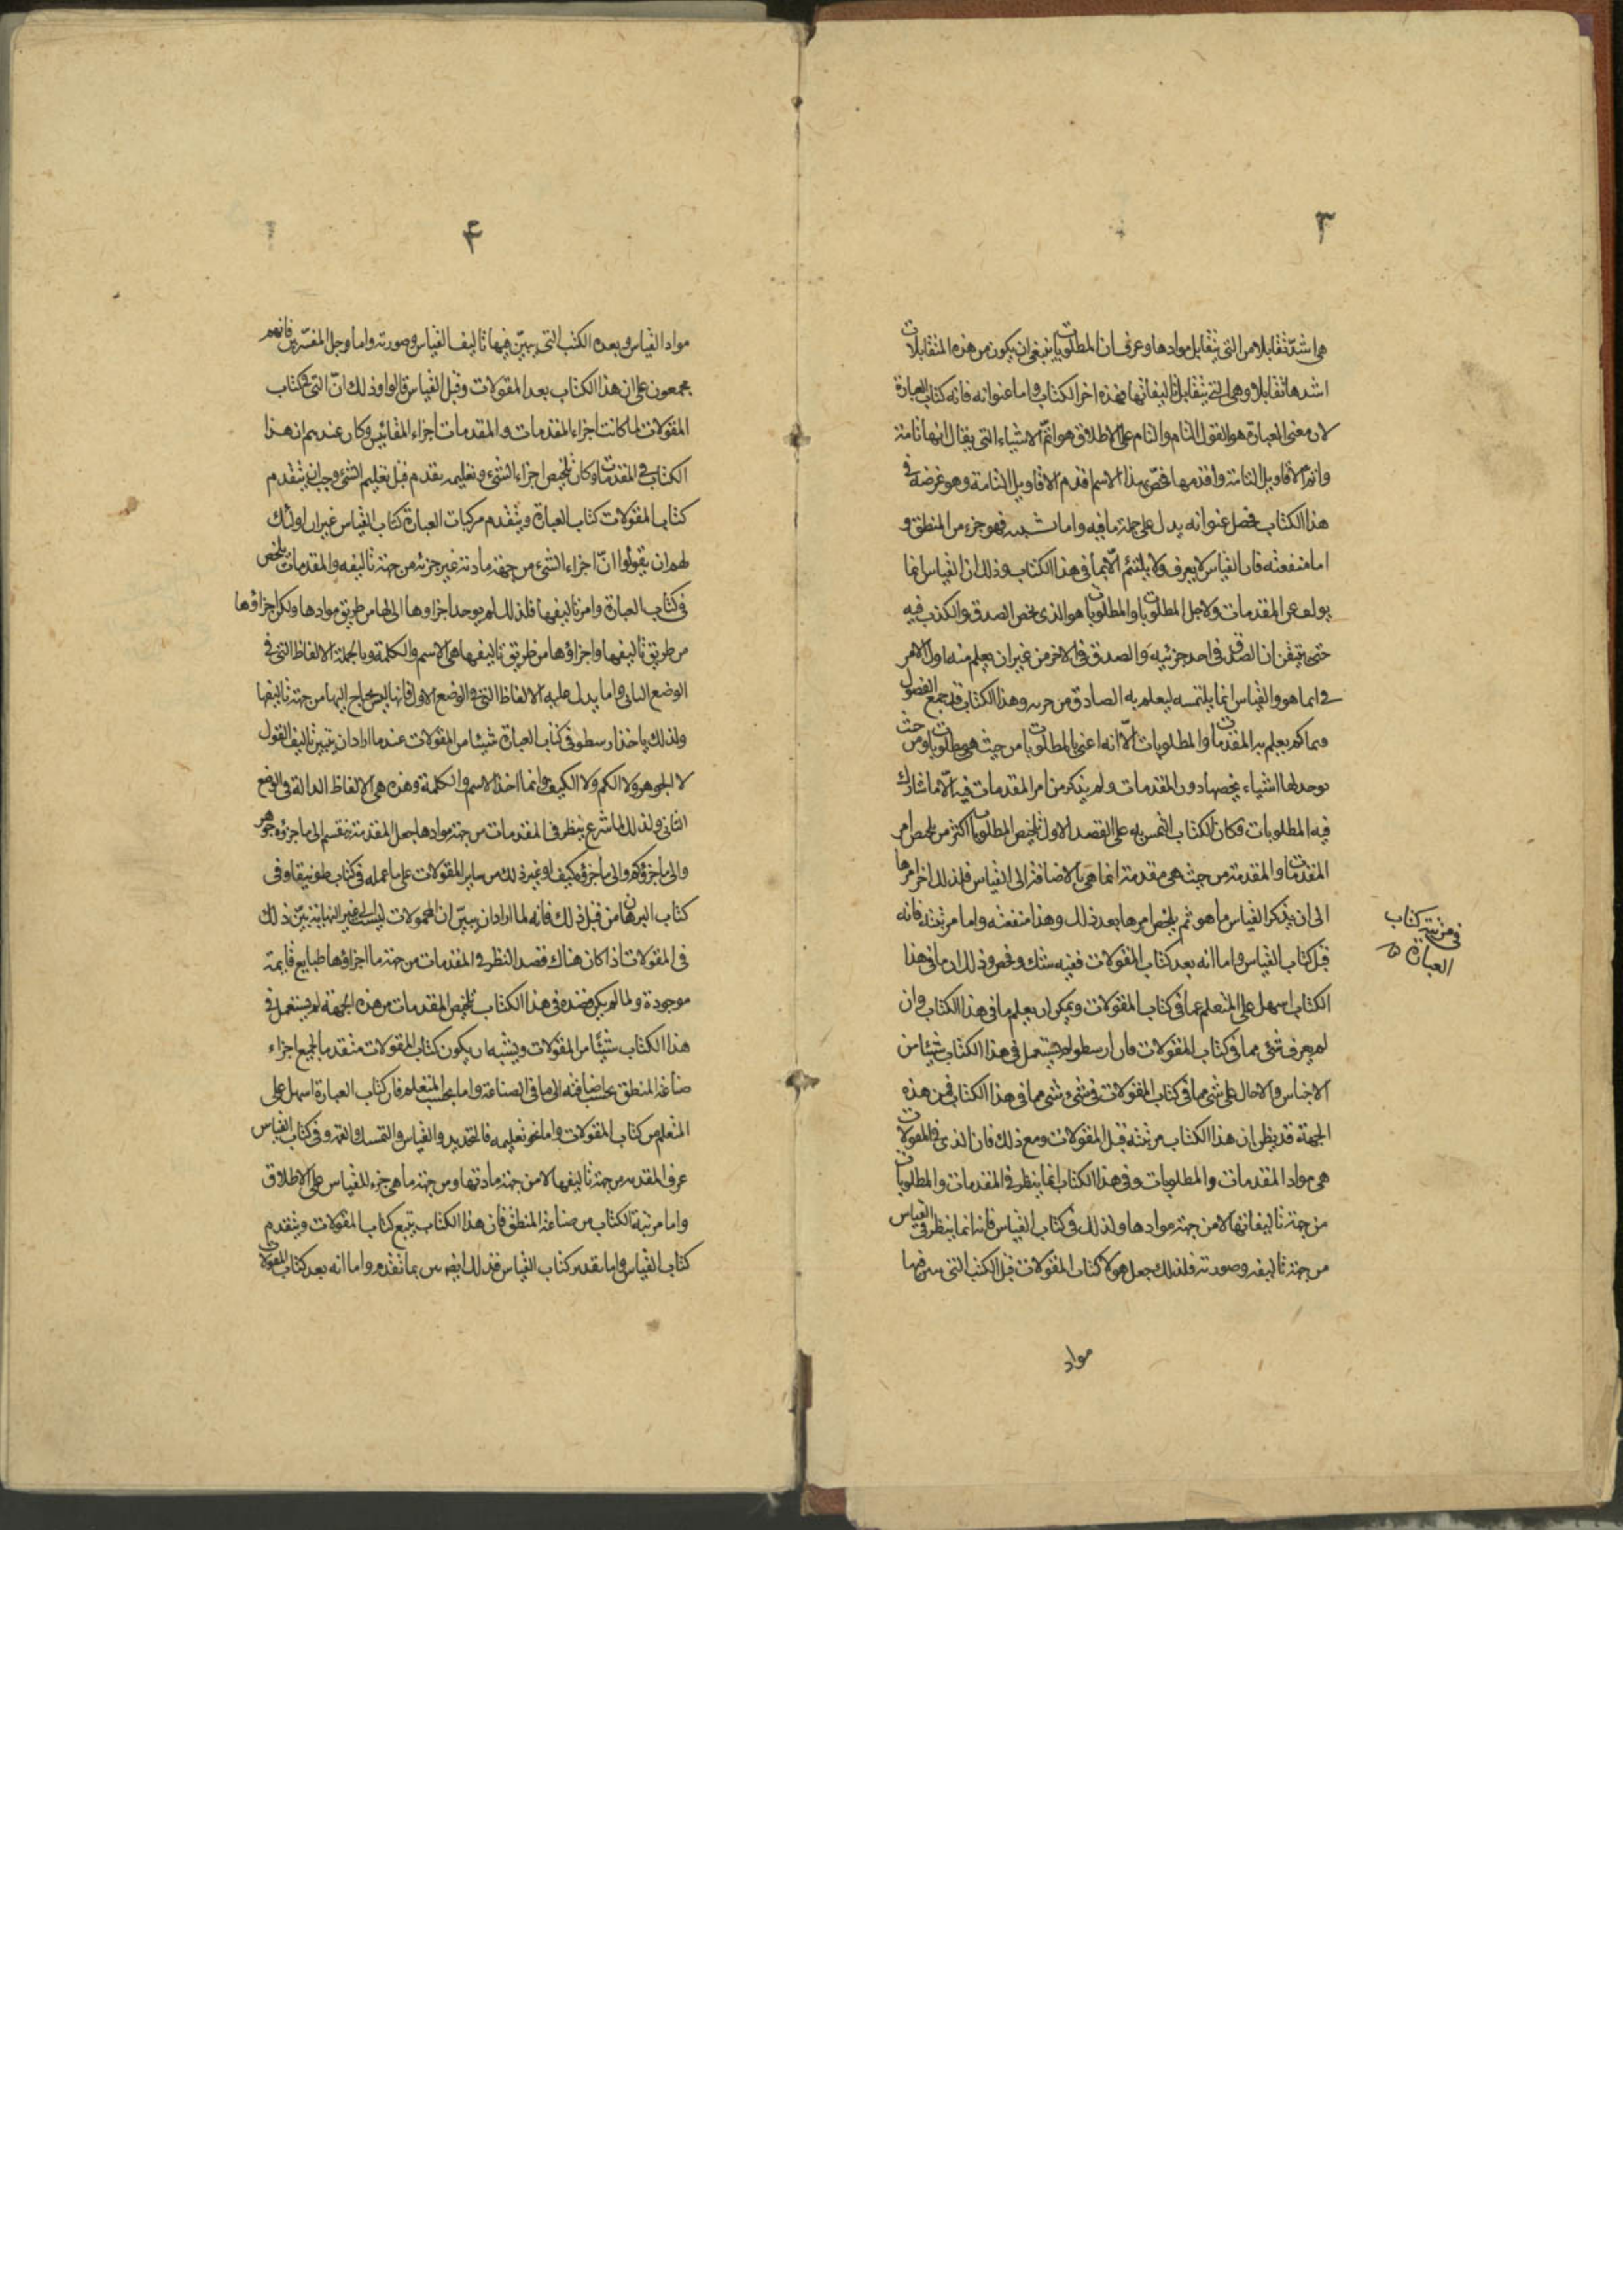 ٣
هى اشدّ تقابلا من التى يتقابل موادها وعرف ان المطلوبات ينبغى ان يكون من هذه المتقابلات
اشدها تقابلا وهى التى يتقابل تاليفاتها فهذه اخر الكتاب واما عنوانه فانه كتاب العبارة
لان معنى العبارة هو القول التام والتام على الاطلاق هو اتمّ الاشياء التى يقال انها تامة
واتم الاقاويل التامة واقدمها فخصّ بهذا الاسم اقدم الاقاويل التامة وهو غرضه فى
هذا الكتاب فحصل عنوانه يدل على جملة ما فيه واما نسبته فهو جزء من المنطق و
اما منفعته فان القياس لا يعرف ولا يلتئم الّا بما فى هذا الكتاب وذلك ان القياس انما
يولف عن المقدمات ولاجل المطلوبات والمطلوبات هو الذى يخص الصدق والكذب فيه
حتى يتيقن ان الصدق فى احد جزئيه والصدق فى الاخر من غير ان يعلم منه اول الامر
فى ايما هو والقياس انما يلتمسه ليعلم به الصادق من جزيه وهذا الكتاب قد جمع الفصول
يعلم به المقدمات والمطلوبات الّا انه اعنى بالمطلوبات من حيث هى مطلوبات ومن حيث
يوجد لها اشياء يخصها دون المقدمات ولم يذكر من امر المقدمات فيه الّا ما شارك
فيه المطلوبات فكان الكتاب التمس به على القصد الاول تلخيص المطلوبات اكثر من تلخيص امر
المقدمات والمقدمة من حيث هى مقدمة انما هى بالاضافة الى القياس فلذلك اخر امرها
الى ان يذكر القياس ما هو ثم يلخص امرها بعد ذلك وهذا منفعته واما مرتبته فانه
قبل كتاب القياس واما انه بعد كتاب المقولات ففيه شك وفحص وذلك ان ما فى هذا
الكتاب اسهل على المتعلم عما فى كتاب المقولات ويمكن ان يعلم ما فى هذا الكتاب وان
لم يعرف شئ مما فى كتاب المقولات فان ارسطو لم يستعمل فى هذا الكتاب شيئا من
الاجناس ولا حال على شئ مما فى كتاب المقولات فى شئ شئ مما فى هذا الكتاب فمن هذه
الجهة قد يظن ان هذا الكتاب مرتبته قبل المقولات ومع ذلك فان الذى فى المقولات
هى مواد المقدمات والمطلوبات وفى هذا الكتاب انما ينظر فى المقدمات والمطلوبات
من جهة تاليفاتها لا من جهة موادها ولذلك فى كتاب القياس فانه انما ينظر فى القياس
من جهة تاليفه وصورته فلذلك جعل هولا كتاب المقولات قبل الكتب التى فيها
مواد
فى مرتبة كتاب
العبارة
۴
مواد القياس وبعده الكتب التى يبيّن فيها تاليف القياس وصورته واما جل المفسّرين فانهم
مجمعون على ان هذا الكتاب بعد المقولات وقبل القياس قالوا وذلك انّ التى فى كتاب
المقولات لما كانت اجزاء المقدمات والمقدمات اجزاء المقائيس وكان عندهم ان هذا
الكتاب فى المقدمات وكان تلخيص اجزاء الشئ وتعليمه يقدم قبل تعليم الشئ وجب ان يتقدم
كتاب المقولات كتاب العبارة ويتقدم مركبات العبارة كتاب القياس غير ان اولئك
لهم ان يقولوا انّ اجزاء الشئ من جهة مادته غير جزئه من جهة تاليفه والمقدمات يلخص
فى كتاب العبارة وامر تاليفها فلذلك لم يوجد اجزاوها الى لها من طريق موادها ولكن اجزاؤها
من طريق تاليفها واجزاؤها من طريق تاليفها هى الاسم والكلمة وبالجملة الالفاظ التى فى
الوضع الثانى واما يدل عليه الالفاظ التى فى الوضع الاول فانها ليس يحتاج اليها من جهة تاليفها
ولذلك ياخذ ارسطو فى كتاب العبارة شيئا من المقولات عند ما اراد ان يتبين تاليف القول
لا الجوهر ولا الكم ولا الكيف وانما اخذ الاسم والكلمة وهذه هى الالفاظ الدالة فى الوضع
الثانى ولذلك لما شرع ينظر فى المقدمات من جهة موادها جعل المقدمة ينقسم الى ما جزؤه جوهر
والى ما جزؤه كم والى ما جزؤه كيف او غير ذلك من ساير المقولات على ما عمله فى كتاب طوبيقا وفى
كتاب البرهان من قبل ذلك فانه لما اراد ان يبيّن ان المحمولات ليست الى غير النهاية بيّن ذلك
فى المقولات اذا كان هناك قصد النظر فى المقدمات من جهة ما اجزاؤها طبايع قايمة
موجودة ولما لم يكن قصده فى هذا الكتاب تلخيص المقدمات من هذه الجهة لم يستعمل فى
هذا الكتاب شيئا من المقولات ويشبه ان يكون كتاب المقولات متقدما لجميع اجزاء
صناعة المنطق بحسب اضافته الى ما فى الصناعة واما بحسب المتعلم فان كتاب العبارة اسهل على
المتعلم من كتاب المقولات واما نحو تعليمه فالتحديد والقياس والتمسك القسمة وفى كتاب القياس
عرف المقدمة من جهة تاليفها لا من جهة مادتها ومن جهة ما هى جزء للقياس على الاطلاق
واما مرتبة الكتاب من صناعة المنطق فان هذا الكتاب يتبع كتاب المقولات ويتقدم
كتاب القياس واما تقديم كتاب القياس فذلك ايضا بيّن بما تقدم واما انه بعد كتاب المقولات